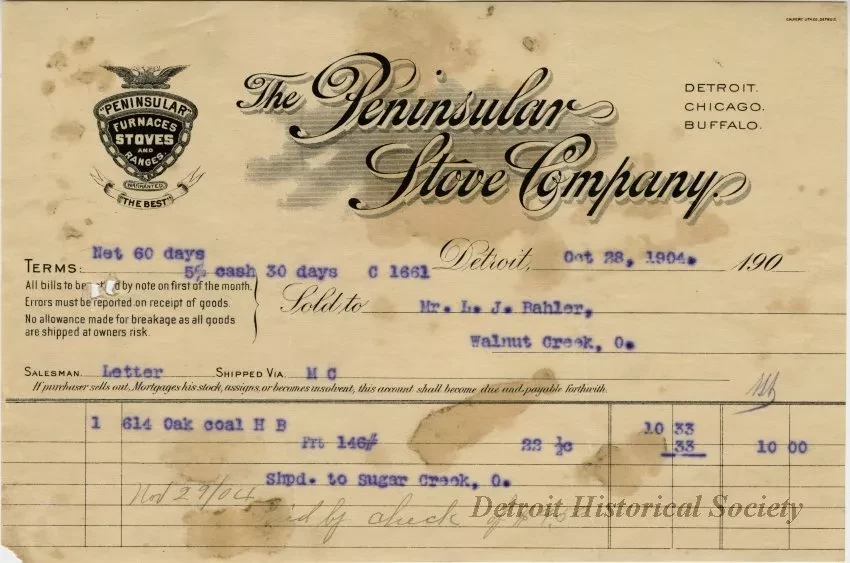 CALVERT LITH.CO. DETROIT.
The Peninsular
Stove Company.
DETROIT.
CHICAGO.
BUFFALO.
"PENINSULAR"
FURNACES
STOVES
AND
RANGES.
WARRANTED
"THE BEST"
TERMS: Net 60 days
5% cash 30 days C 1661
Detroit, Oct 28, 1904. 190
All bills to be by note on first of the month.
Errors must be reported on receipt of goods.
No allowance made for breakage as all goods
are shipped at owners risk.
Sold to Mr. L. J. Bahler,
Walnut Creek, O.
SALESMAN. Letter SHIPPED VIA M C
If purchaser sells out, Mortgages his stock, assigns, or becomes insolvent, this account shall become due and payable forthwith.
1 614 Oak coal H B 10 33
Frt 146# 22 ½c 33 10 00
Shpd. to Sugar Creek, O.
Nov 29/04
by check
Detroit Historical Society